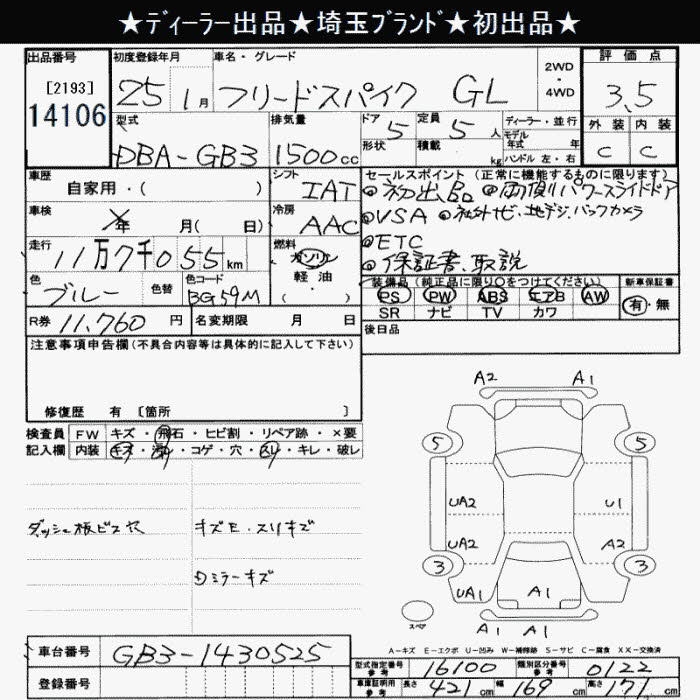 ★ディーラー出品★埼玉ブランド★初出品★
出品番号 初度登録年月 車名・グレード 2WD・4WD 評価点
[2193] 25 1月 フリードスパイク GL 3.5
14106
型式 排気量 ドア 5 定員 5人 ディーラー・並行 外装 内装
DBA-GB3 1500cc 形状 積載 kg モデル年式 年 C C
ハンドル 左・右
車歴 シフト セールスポイント(正常に機能するものに限ります)
自家用・( ) IAT ●初出品 ●両側パワースライドドア
車検 年 月( 日) 冷房 AAC ●VSA ●社外ナビ、地デジ、バックカメラ
走行 11万7千055km 燃料 ガソリン ●ETC
軽油 ●保証書、取説
色 ブルー 色替 色コード BG59M ( )
装備品(純正品に限り○をつけてください) 新車保証書
PS PW ABS エアB AW 有・無
SR ナビ TV カワ
R券 11,760円 名変期限 月 日
後日品
注意事項申告欄(不具合内容等は具体的に記入して下さい)
修復歴 有 [箇所 ]
検査員 FW キズ・飛石・ヒビ割・リペア跡・×要
記入欄 内装 キズ・汚れ・コゲ・穴・スリ・キレ・破レ
ダッシュ板ビス穴 キズE・スリキズ
Dミラーキズ
A2 A1
5 5
UA2 U1
UA2 A2
3 3
UA1 A1
スペア
A1 A1
A-キズ E-エクボ U-凹み W-補修跡 S-サビ C-腐食 XX-交換済
車台番号 GB3-1430525
登録番号
型式指定番号 参考 16100 類別区分番号 参考 0122
車庫証明用 参考 長さ 421cm 幅 169cm 高さ 171cm